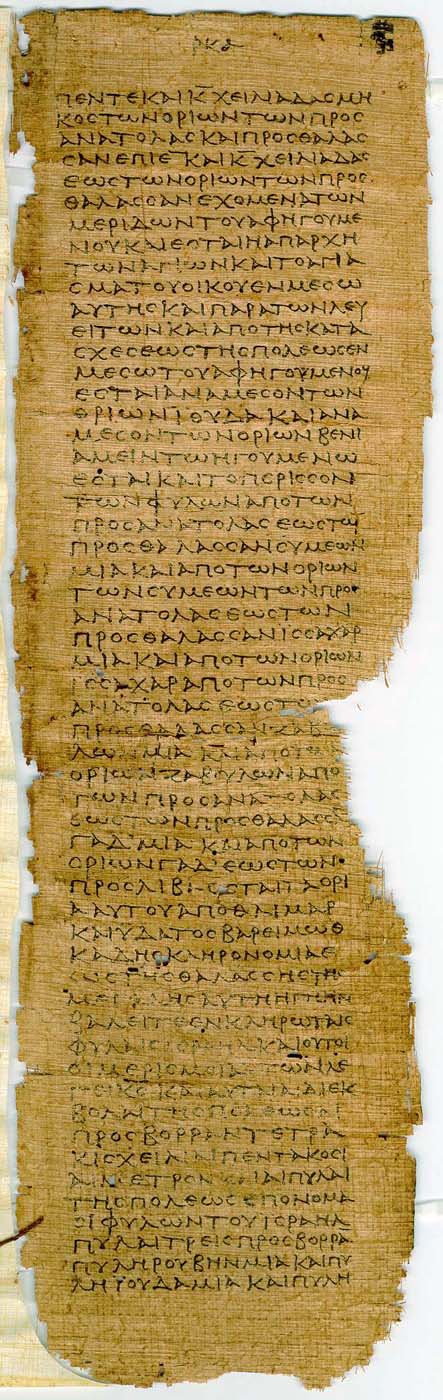 ρκδ
ΠΕΝΤΕΚΑΙΚ̅ΧΕΙΛΙΑΔΑΣΜΗ
ΚΟΣΤΩΝΟΡΙΩΝΤΩΝΠΡΟΣ
ΑΝΑΤΟΛΑΣΚΑΙΠΡΟΣΘΑΛΑΣ
ΣΑΝΕΠΙΕ̅ΚΑΙΚ̅ΧΕΙΛΙΑΔΑΣ
ΕΩΣΤΩΝΟΡΙΩΝΤΩΝΠΡΟΣ
ΘΑΛΑΣΣΑΝΕΧΟΜΕΝΑΤΩΝ
ΜΕΡΙΔΩΝΤΟΥΑΦΗΓΟΥΜΕ
ΝΟΥΚΑΙΕΣΤΑΙΗΑΠΑΡΧΗ
ΤΩΝΑΓΙΩΝΚΑΙΤΟΑΓΙΑ
ΣΜΑΤΟΥΟΙΚΟΥΕΝΜΕΣΩ
ΑΥΤΗΣΚΑΙΠΑΡΑΤΩΝΛΕΥ
ΕΙΤΩΝΚΑΙΑΠΟΤΗΣΚΑΤΑ
ΣΧΕΣΕΩΣΤΗΣΠΟΛΕΩΣΕΝ
ΜΕΣΩΤΟΥΑΦΗΓΟΥΜΕΝΟΥ
ΕΣΤΑΙΑΝΑΜΕΣΟΝΤΩΝ
ΟΡΙΩΝΙΟΥΔΑΚΑΙΑΝΑ
ΜΕΣΟΝΤΩΝΟΡΙΩΝΒΕΝΙ
ΑΜΕΙΝΤΩΗΓΟΥΜΕΝΩ
ΕΣΤΑΙΚΑΙΤΟΠΕΡΙΣΣΟΝ
ΤΩΝΦΥΛΩΝΑΠΟΤΩΝ
ΠΡΟΣΑΝΑΤΟΛΑΣΕΩΣΤΩ̅
ΠΡΟΣΘΑΛΑΣΣΑΝΣΥΜΕΩΝ
ΜΙΑΚΑΙΑΠΟΤΩΝΟΡΙΩΝ
ΤΩΝΣΥΜΕΩΝΤΩΝΠΡΟΣ
ΑΝΑΤΟΛΑΣΕΩΣΤΩΝ
ΠΡΟΣΘΑΛΑΣΣΑΝΙΣΣΑΧΑΡ
ΜΙΑΚΑΙΑΠΟΤΩΝΟΡΙΩΝ
ΙΣΣΑΧΑΡΑΠΟΤΩΝΠΡΟΣ
ΑΝΑΤΟΛΑΣΕΩΣΤΩ
ΠΡΟΣΘΑΛΑΣΣΑΝΖΑΒ
ΛΩΝΜΙΑΚΑΙΑΠΟΤΩΝ
ΟΡΙΩΝΖΑΒΥΛΩΝΑΠΟ
ΤΩΝΠΡΟΣΑΝΑΤΟΛΑΣ
ΕΩΣΤΩΝΠΡΟΣΘΑΛΑΣΣ
ΓΑΔ'ΜΙΑΚΑΙΑΠΟΤΩΝ
ΟΡΙΩΝΓΑΔ'ΕΩΣΤΩΝ
ΠΡΟΣΛΙΒΑΕΣΤΑΙΤΑΟΡΙ
ΑΑΥΤΟΥΑΠΟΘΑΙΜΑΡ
ΚΑΙΥΔΑΤΟΣΒΑΡΕΙΜΩΘ
ΚΑΔΗΣΚΛΗΡΟΝΟΜΙΑΕ
ΩΣΤΗΣΘΑΛΑΣΣΗΣΤΗΣ
ΜΕΓΑΛΗΣΑΥΤΗΗΓΗΗΝ
ΒΑΛΕΙΤΕΕΝΚΛΗΡΩΤΑΙΣ
ΦΥΛΑΙΣΙΣΡΑΗΛΚΑΙΟΥΤΟΙ
ΟΙΜΕΡΙΣΜΟΙΑΥΤΩΝΛΕ
ΓΕΙΚΣΚΑΙΑΥΤΑΙΑΙΔΙΕΚ
ΒΟΛΑΙΤΗΣΠΟΛΕΩΣΑΙ
ΠΡΟΣΒΟΡΡΑΝΤΕΤΡΑ
ΚΙΣΧΕΙΛΙΑΙΠΕΝΤΑΚΟΣΙ
ΑΙΜΕΤΡΟΝΚΑΙΑΙΠΥΛΑΙ
ΤΗΣΠΟΛΕΩΣΕΠΟΝΟΜΑ
ΣΙΦΥΛΩΝΤΟΥΙΣΡΑΗΛ
ΠΥΛΑΙΤΡΕΙΣΠΡΟΣΒΟΡΡΑ
ΠΥΛΗΡΟΥΒΗΝΜΙΑΚΑΙΠΥ
ΛΗΙΟΥΔΑΜΙΑΚΑΙΠΥΛΗ